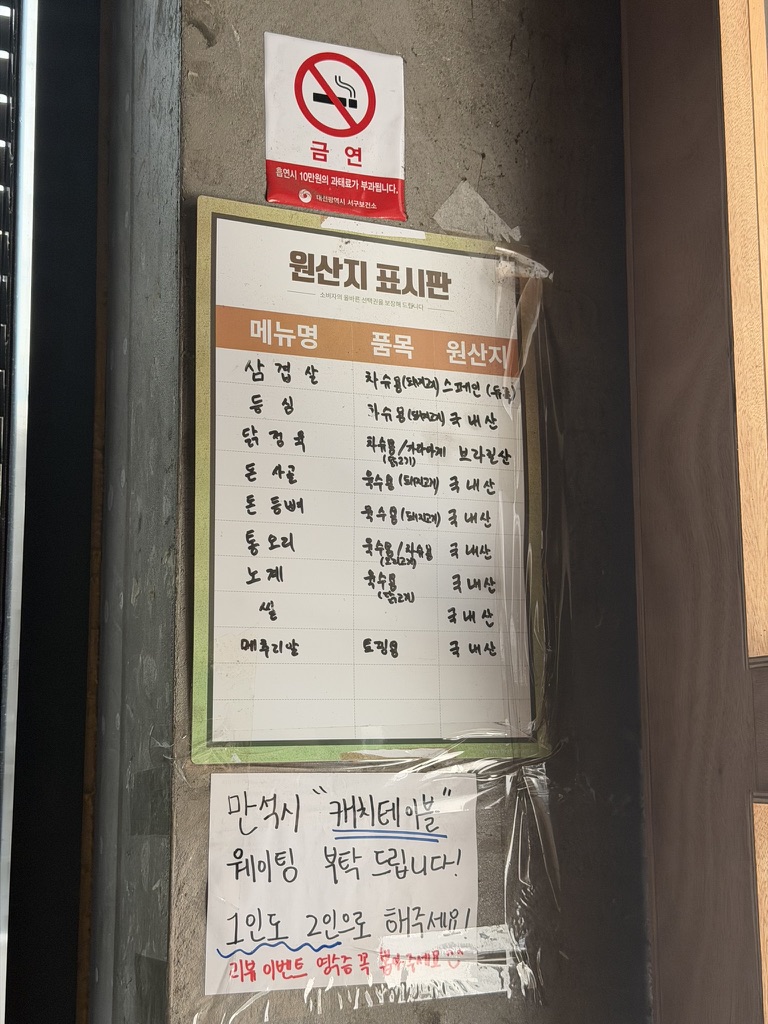 금 연
흡연시 10만원의 과태료가 부과됩니다.
대전광역시 서구보건소
원산지 표시판
소비자의 올바른 선택권을 보장해 드립니다
메뉴명 품목 원산지
삼겹살 차슈용(돼지고기) 스페인
등심 차슈용(돼지고기) 국내산
닭정육 차슈용/가라아게 브라질산
(닭고기)
돈사골 육수용(돼지고기) 국내산
돈등뼈 육수용(돼지고기) 국내산
통오리 육수용/차슈용 국내산
(오리고기)
노계 육수용 국내산
(닭고기)
쌀 국내산
메추리알 토핑용 국내산
만석시 "캐치테이블"
웨이팅 부탁 드립니다!
1인도 2인으로 해주세요!
리뷰 이벤트 영수증 꼭